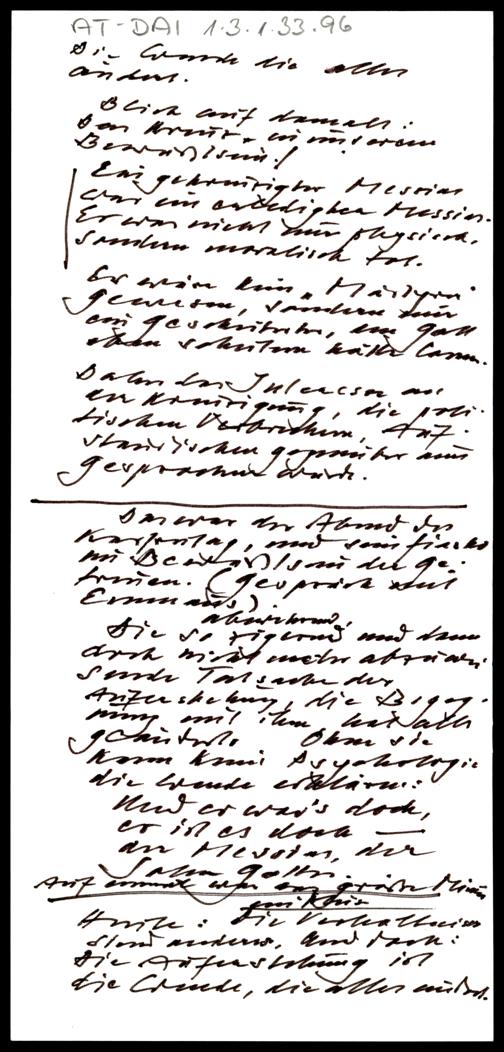 AT-DAI 1.3.1.33.96
Die Wende die alles
ändert.
Blick auf damals:
Das Kreuz - in unserem
Bewußtsein!
Ein gekreuzigter Messias
war ein erledigter Messias.
Er war nicht nur physisch,
sondern moralisch tot.
Er wäre kein „Märtyrer"
gewesen, sondern nur
ein gescheiterter, den Gott
eben scheitern hätte lassen.
Daher das Interesse an
der Kreuzigung, die poli-
tischen Verbrechern, Auf-
ständischen gegenüber aus
gesprochen wurde.
Das war der Abend des
Karfreitag, und sein Fiasko
im Bewußtsein der Ge-
treuen. (Gespräch mit
Emmaus).
abwehrend,
Die so zögernd und dann
doch nicht mehr abzuwei-
sende Tatsache der
Auferstehung, die Begeg-
nung mit ihm hat alles
geändert. Ohne sie
kann keine Psychologie
die Wende erklären:
Und er war's doch,
er ist es doch —
der Messias, der
Sohn Gottes.
Auf einmal war ein größer
Heute: Die Verhältnisse
sind anders. Und doch:
Die Auferstehung ist
die Wende, die alles ändert.